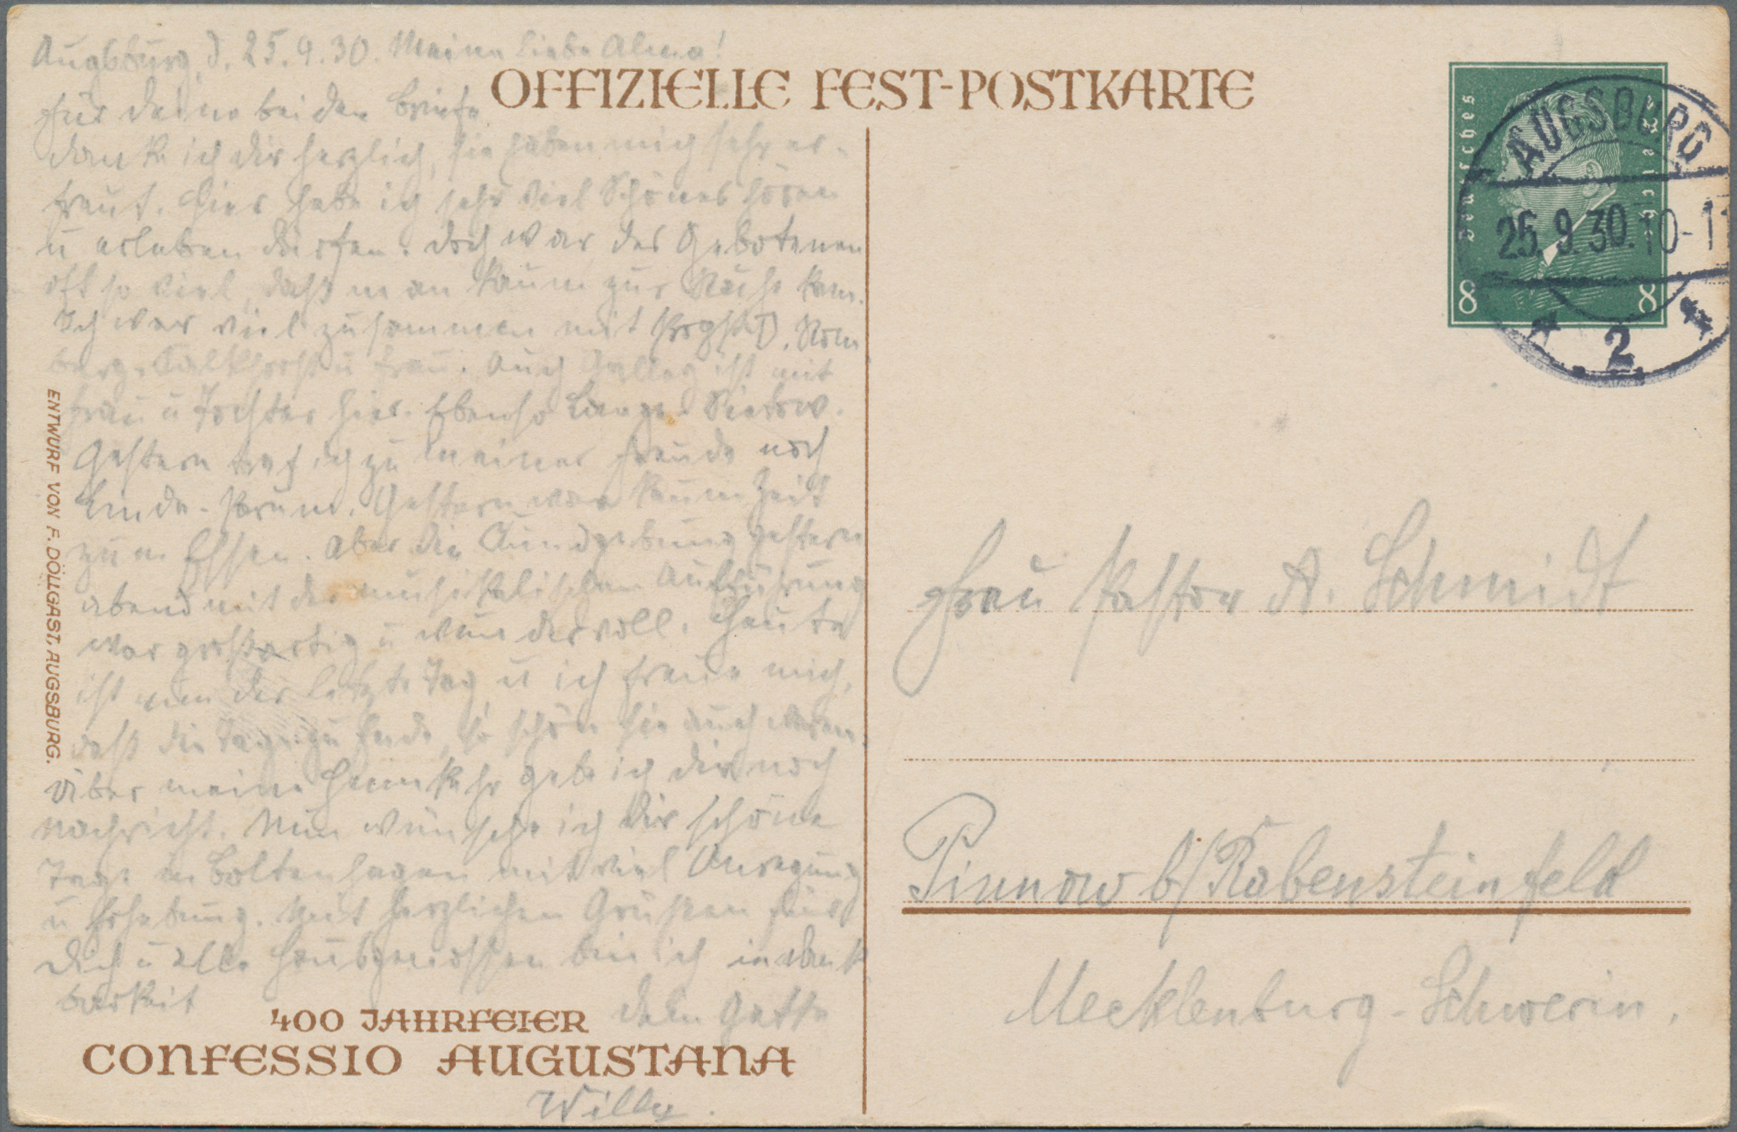 Augsburg, d. 25.9.30. Meine liebe Alma!
OFFIZIELLE FEST-POSTKARTE
für deine beiden Briefe
danke ich dir herzlich, sie haben mich sehr er-
freut. Hier habe ich sehr viel Schönes hören
u erleben dürfen. Doch war des Gebotenen
oft so viel, daß man kaum zur Ruhe kam.
Ich war viel zusammen mit
u Frau. Auch ist mit
Frau u Tochter hier. Ebenso
Gestern traf ich zu meiner Freude noch
Gestern war kaum Zeit
zum Essen. Aber die Kundgebung gestern
abend mit der musikalischen Aufführung
war großartig u wundervoll. Heute
ist nun der letzte Tag u ich freue mich,
daß die Tage zu Ende, so schön sie auch waren
Über meine Heimkehr gebe ich dir noch
Nachricht. Nun wünsche ich dir schöne
Tage in Boltenhagen mit viel Anregung
u Erhebung. Mit herzlichen Grüßen für
Dich u alle Hausgenossen bin ich in Dank
barkeit
dein Gatte
Willy.
400 JAHRFEIER
CONFESSIO AUGUSTANA
ENTWURF VON F. DÖLLGAST, AUGSBURG.
Deutsches Reich
8 8
AUGSBURG
25.9.30.10-11
* 2 *
Frau Pastor A. Schmidt
Pinnow b/Rabensteinfeld
Mecklenburg-Schwerin.